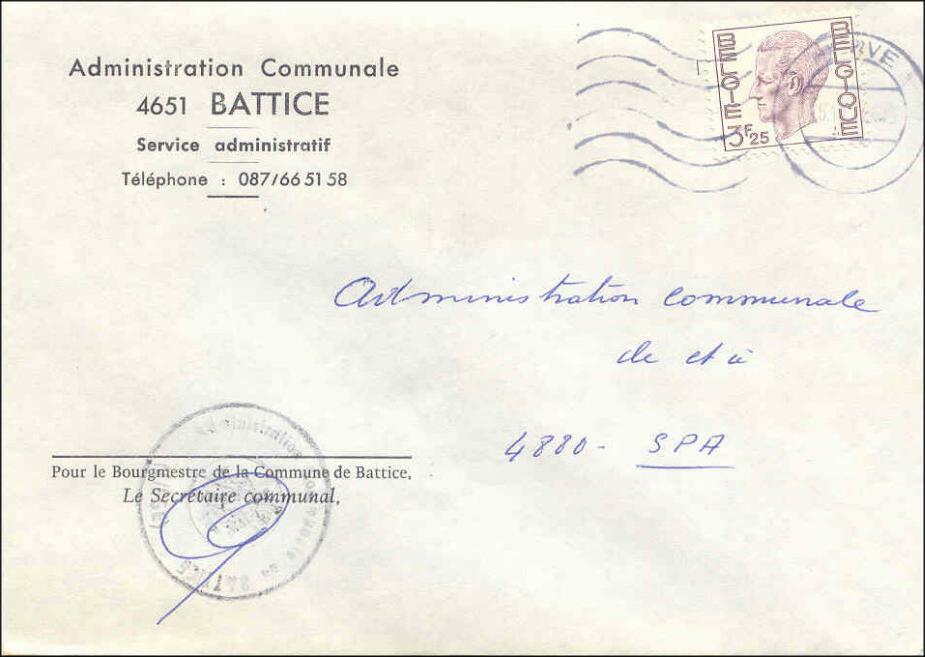 Administration Communale
4651 BATTICE
Service administratif
Téléphone : 087/66 51 58
BELGIE
BELGIQUE
3F25
Administration communale
de et à
4880- SPA
Pour le Bourgmestre de la Commune de Battice,
Le Secrétaire communal,
Administration communale de BATTICE